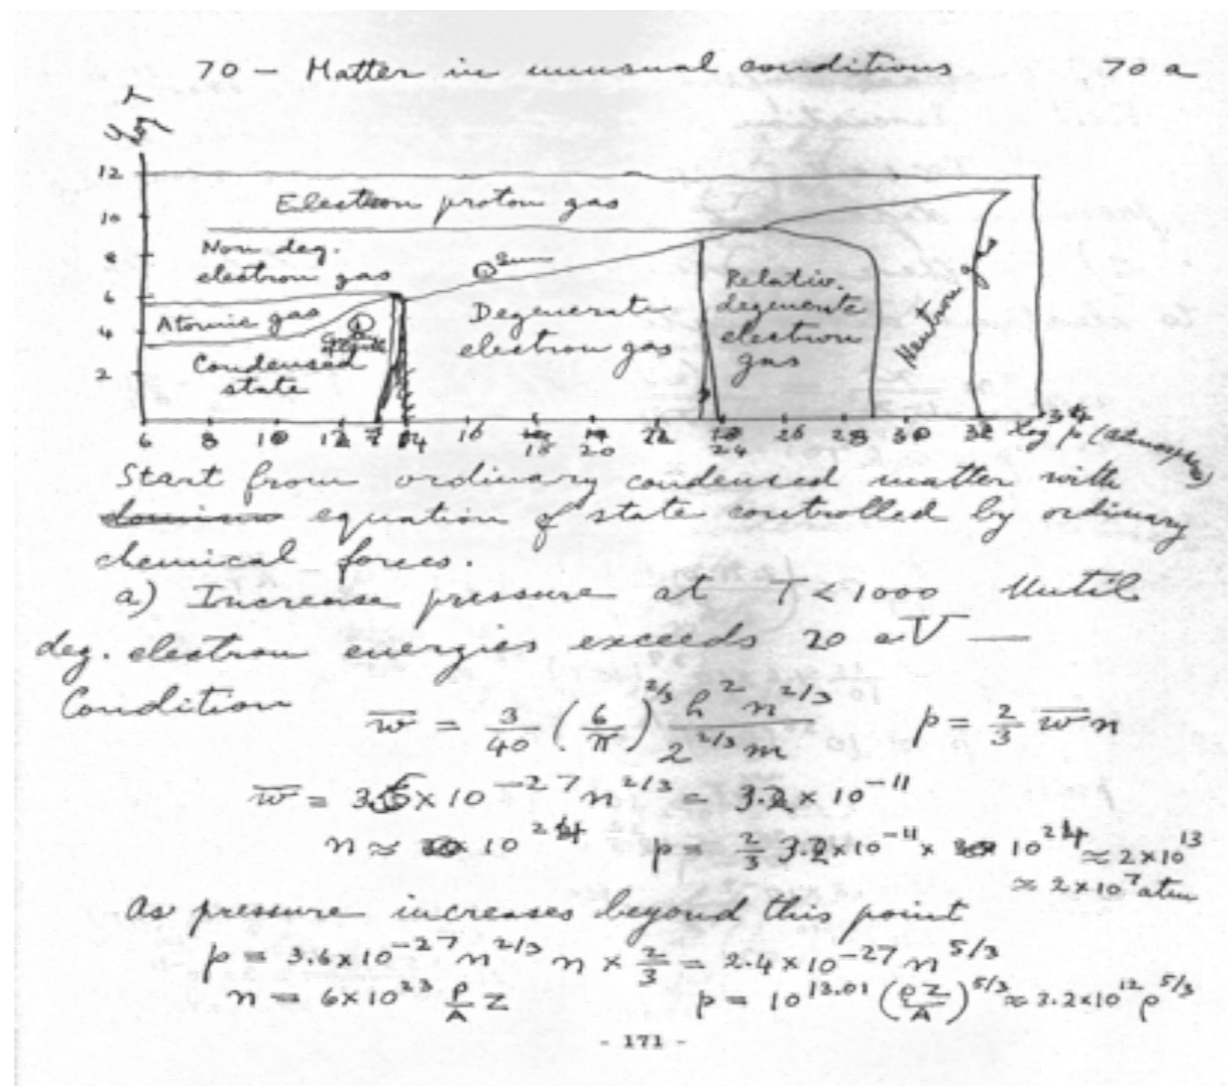 70 – Matter in unusual conditions 70 a
log T
12
10
8
6
4
2
Electron proton gas
Non deg.
electron gas
Sun
Atomic gas
Condensed
state
Degenerate
electron gas
Relativ.
degenerate
electron
gas
Neutron gas
6 8 10 12 14 16 18 20 22 24 26 28 30 32 log p (atmospheres)
Start from ordinary condensed matter with
equation of state controlled by ordinary
chemical forces.
a) Increase pressure at T < 1000 Until
deg. electron energies exceeds 20 eV —
Condition w̄ = 3/40 (6/π)^2/3 h^2 n^2/3 / 2^2/3 m p = 2/3 w̄ n
w̄ = 3.6 × 10^-27 n^2/3 = 3.2 × 10^-11
n ≈ 10^24 p = 2/3 3.2×10^-11 × 10^24 ≈ 2×10^13
≈ 2×10^7 atm
As pressure increases beyond this point
p = 3.6×10^-27 n^2/3 n × 2/3 = 2.4×10^-27 n^5/3
n = 6×10^23 ρ/A Z p = 10^13.01 (ρZ/A)^5/3 ≈ 3.2×10^12 ρ^5/3
- 171 -